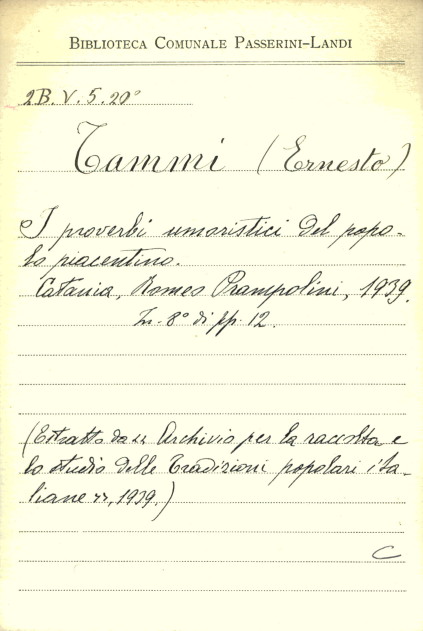 BIBLIOTECA COMUNALE PASSERINI-LANDI
2B. V. 5. 20°
Tammi (Ernesto)
I proverbi umoristici del popo-
lo piacentino.
Catania, Romeo Prampolini, 1939.
In-8° di pp. 12.
(Estratto da « Archivio per la raccolta e
lo studio delle tradizioni popolari ita-
liane », 1939.)
C